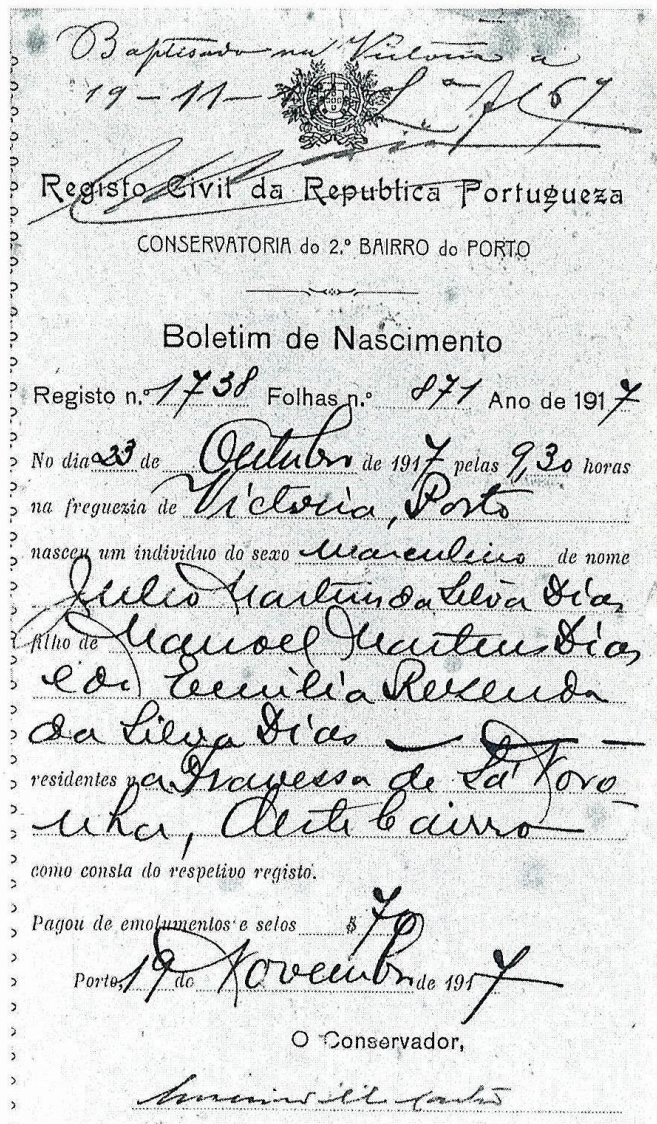 Baptisado na Victoria a
19-11-
Registo Civil da Republica Portugueza
CONSERVATORIA do 2.º BAIRRO do PORTO
Boletim de Nascimento
Registo n.º 1738 Folhas n.º 871 Ano de 1917
No dia 23 de Outubro de 1917 pelas 9,30 horas
na freguezia de Victoria, Porto
nasceu um individuo do sexo masculino de nome
Julio Martins da Silva Dias
filho de Manoel Martins Dias
e de Emilia Rezenda
da Silva Dias
residentes na Travessa de Sá Noro
nha, deste bairro
como consta do respetivo registo.
Pagou de emolumentos e selos $70
Porto, 19 de Novembro de 1917
O Conservador,